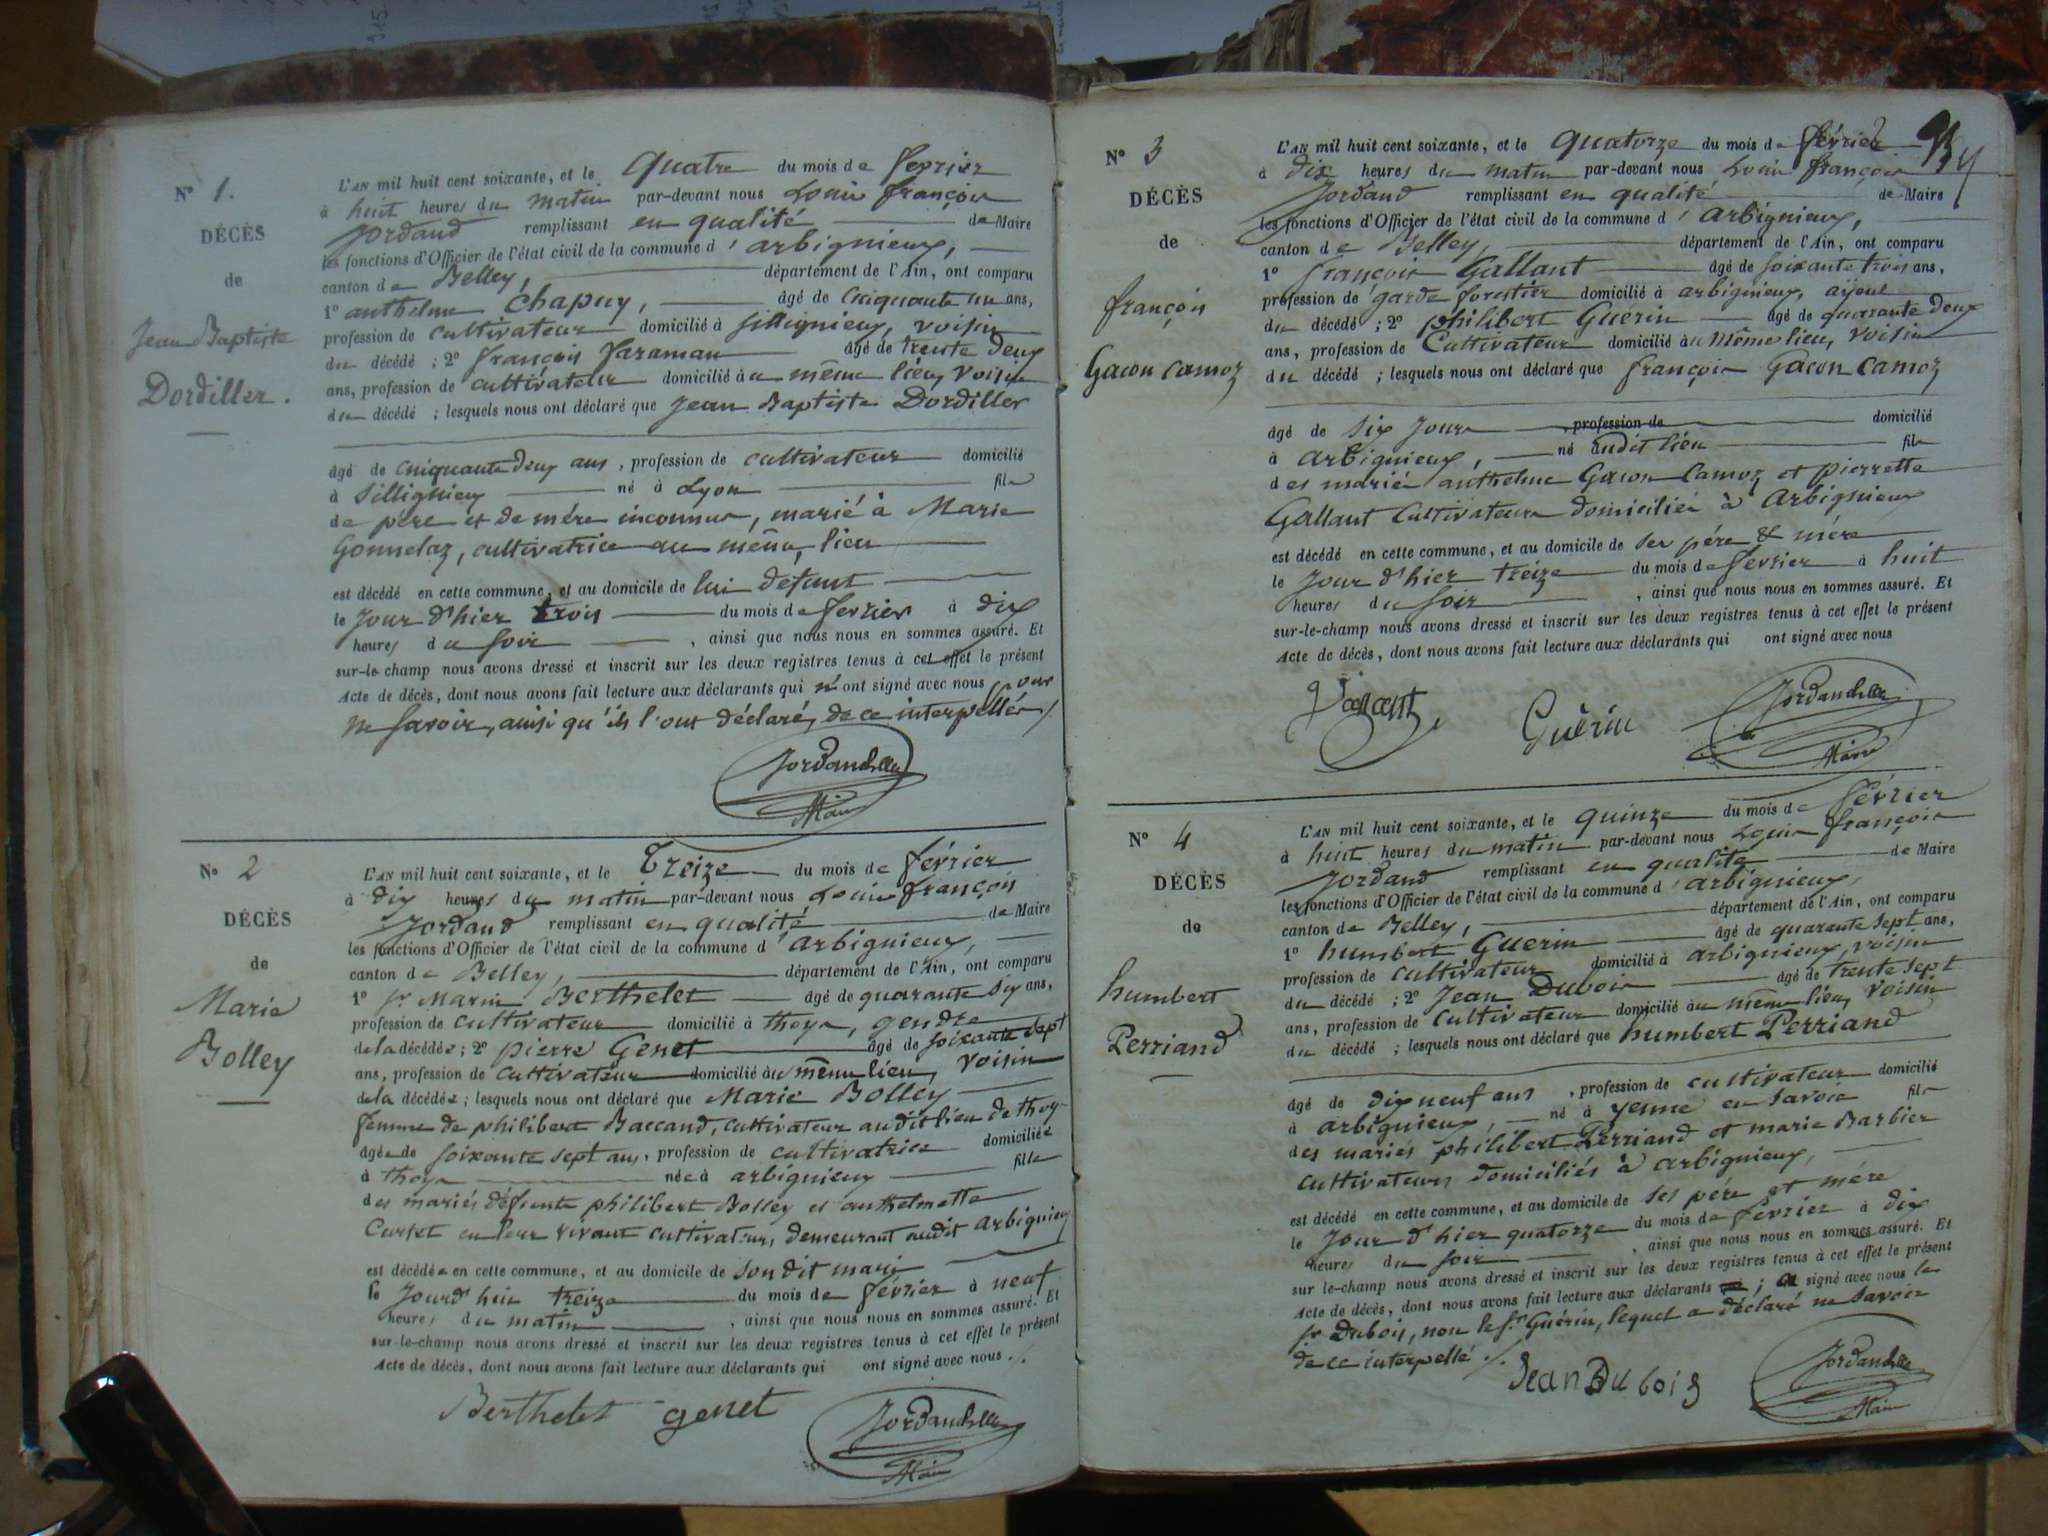 N° 1.
DÉCÈS
de
Jean Baptiste
Dordiller.
L'AN mil huit cent soixante, et le quatre du mois de février
à huit heures du matin par-devant nous Louis françois
Jordand remplissant en qualité de Maire
les fonctions d'Officier de l'état civil de la commune d'arbignieux,
canton de Belley, département de l'Ain, ont comparu
1° anthelme Chapuy, âgé de cinquante un ans,
profession de cultivateur domicilié à Sillignieux, voisin
du décédé ; 2° françois âgé de trente deux
ans, profession de cultivateur domicilié au même lieu, voisin
du décédé ; lesquels nous ont déclaré que Jean Baptiste Dordiller
âgé de cinquante deux ans, profession de cultivateur domicilié
à Sillignieux né à Lyon fils
de père et de mére inconnus, marié à Marie
Gonnelaz, cultivatrice au même lieu
est décédé en cette commune, et au domicile de lui defunt
le jour d'hier trois du mois de février à dix
heures du soir , ainsi que nous nous en sommes assuré. Et
sur-le-champ nous avons dressé et inscrit sur les deux registres tenus à cet effet le présent
Acte de décès, dont nous avons fait lecture aux déclarants qui n'ont signé avec nous pour
ne savoir, ainsi qu'ils l'ont déclaré, de ce interpellés
Maire
N° 2
DÉCÈS
de
Marie
Bolley
L'AN mil huit cent soixante, et le Treize du mois de février
à dix heures du matin par-devant nous Louis françois
Jordand remplissant en qualité de Maire
les fonctions d'Officier de l'état civil de la commune d'arbignieux,
canton de Belley, département de l'Ain, ont comparu
1° Sr Marin Berthelet âgé de quarante six ans,
profession de cultivateur domicilié à thoys, gendre
de la décédée ; 2° pierre Genet âgé de soixante sept
ans, profession de cultivateur domicilié au même lieu, voisin
de la décédée ; lesquels nous ont déclaré que Marie Bolley
femme de philibert Baccand, cultivateur au dit lieu de thoys
âgée de soixante sept ans, profession de cultivatrice domiciliée
à thoys née à arbignieux fille
des mariés défunts philibert Bolley et anthelmette
Curtet en leur vivant cultivateurs, demeurant audit arbignieux
est décédée en cette commune, et au domicile de son dit mari
le Jourd'hui treize du mois de février à neuf
heures du matin , ainsi que nous nous en sommes assuré. Et
sur-le-champ nous avons dressé et inscrit sur les deux registres tenus à cet effet le présent
Acte de décès, dont nous avons fait lecture aux déclarants qui ont signé avec nous ./.
Berthelet genet
Maire
N° 3
DÉCÈS
de
françois
Gacon Camoz
L'AN mil huit cent soixante, et le quatorze du mois de février
à dix heures du matin par-devant nous Louis françois
Jordand remplissant en qualité de Maire
les fonctions d'Officier de l'état civil de la commune d'arbignieux,
canton de Belley, département de l'Ain, ont comparu
1° françois Gallant âgé de soixante trois ans,
profession de garde forestier domicilié à arbignieux, ayeul
du décédé ; 2° philibert Guerin âgé de quarante deux
ans, profession de Cultivateur domicilié au même lieu, voisin
du décédé ; lesquels nous ont déclaré que françois Gacon Camoz
âgé de six jours , profession de domicilié
à arbignieux, né audit lieu fils
des mariés anthelme Gacon Camoz et pierrette
Gallant Cultivateurs domiciliés à Arbignieux
est décédé en cette commune, et au domicile de ses pére & mére
le Jour d'hier treize du mois de février à huit
heures du soir , ainsi que nous nous en sommes assuré. Et
sur-le-champ nous avons dressé et inscrit sur les deux registres tenus à cet effet le présent
Acte de décès, dont nous avons fait lecture aux déclarants qui ont signé avec nous
Guèrin
Maire
N° 4
DÉCÈS
de
humbert
Perriand
L'AN mil huit cent soixante, et le quinze du mois de février
à huit heures du matin par-devant nous Louis françois
Jordand remplissant en qualité de Maire
les fonctions d'Officier de l'état civil de la commune d'arbignieux,
canton de Belley, département de l'Ain, ont comparu
1° humbert Guerin âgé de quarante sept ans,
profession de cultivateur domicilié à arbignieux, voisin
du décédé ; 2° Jean Dubois âgé de trente sept
ans, profession de Cultivateur domicilié au même lieu, voisin
du décédé ; lesquels nous ont déclaré que humbert Perriand
âgé de dix neuf ans , profession de cultivateur domicilié
à arbignieux, né à Yenne en Savoie fils
des mariés philibert Perriand et marie Barbier
cultivateurs domiciliés à arbignieux,
est décédé en cette commune, et au domicile de ses pére et mére
le Jour d'hier quatorze du mois de février à dix
heures du soir , ainsi que nous nous en sommes assuré. Et
sur le-champ nous avons dressé et inscrit sur les deux registres tenus à cet effet le présent
Acte de décès, dont nous avons fait lecture aux déclarants ; a signé avec nous le
sr Dubois, non le sr Guérin, lequel a déclaré ne savoir
de ce interpellé ./.
Jean Dubois
Maire